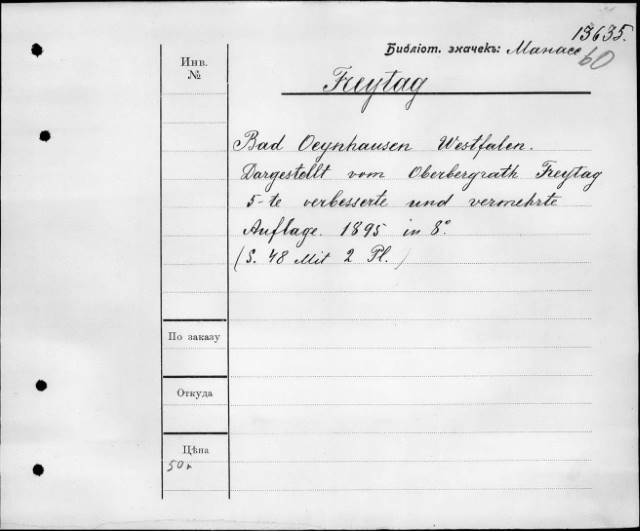 13635.
Библіот. значекъ: Манасс
60
Инв.
№
Freytag
Bad Oeynhausen Westfalen.
Dargestellt vom Oberbergrath Freytag
5-te verbesserte und vermehrte
Auflage. 1895 in 8°.
(S. 48 Mit 2 Pl.)
По заказу
Откуда
Цѣна
50к